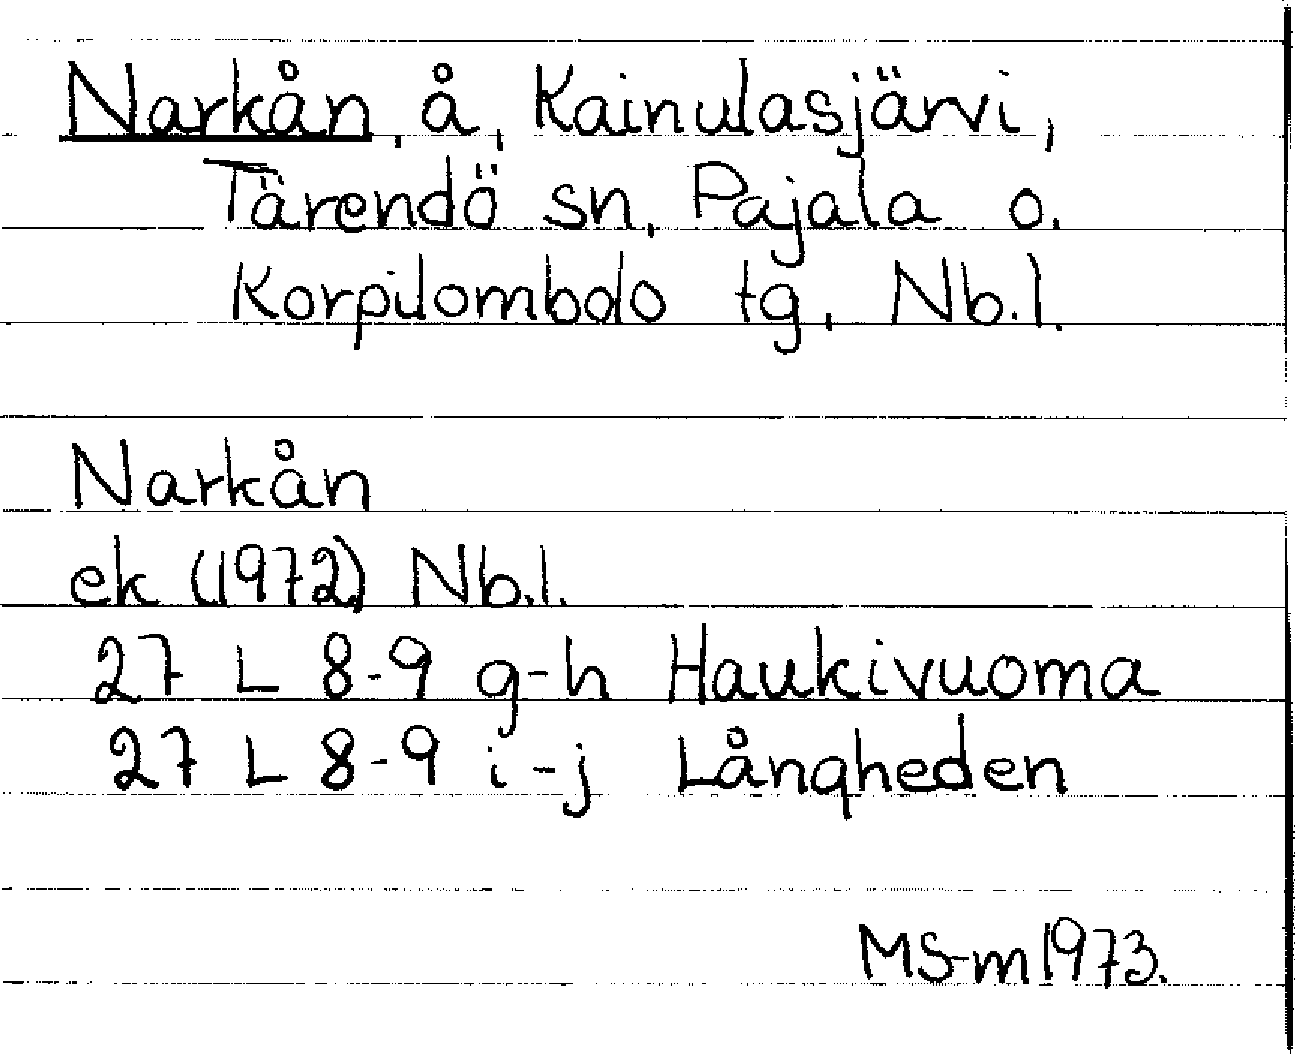 Narkån, å, Kainulasjärvi,
Tärendö sn, Pajala o.
Korpilombolo tg, Nb.l.
Narkån
ek (1972) Nb.l.
27 L 8-9 g-h Haukivuoma
27 L 8-9 i-j Långheden
MS-m 1973.